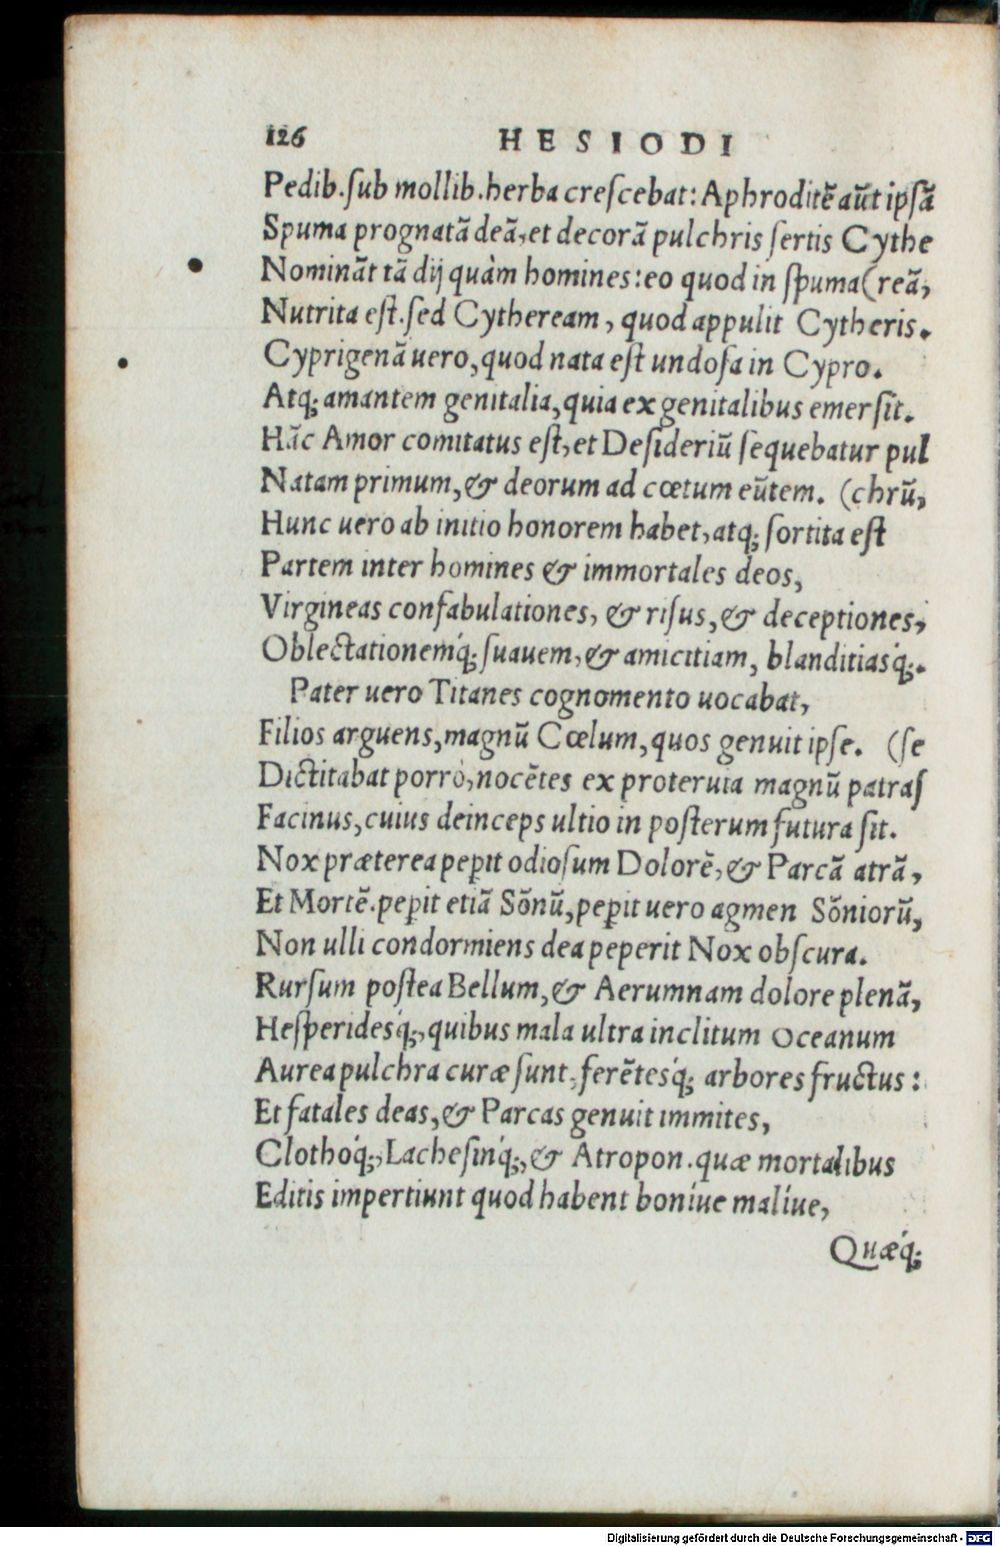 126 HESIODI
Pedib.ſub mollib.herba creſcebat: Aphroditē aūt ipſā
Spuma prognatā deā, et decorā pulchris ſertis Cythe
Nomināt tā dij quàm homines: eo quod in ſpuma (reā,
Nutrita eſt. ſed Cytheream, quod appulit Cytheris.
Cyprigenā uero, quod nata eſt undoſa in Cypro.
Atq; amantem genitalia, quia ex genitalibus emerſit.
Hāc Amor comitatus eſt, et Deſideriū ſequebatur pul
Natam primum, & deorum ad cœtum eūtem. (chrū,
Hunc uero ab initio honorem habet, atq; ſortita eſt
Partem inter homines & immortales deos,
Virgineas confabulationes, & riſus, & deceptiones,
Oblectationemq́; ſuauem, & amicitiam, blanditiasq́;.
Pater uero Titanes cognomento uocabat,
Filios arguens, magnū Cœlum, quos genuit ipſe. (ſe
Dictitabat porrò, nocētes ex proteruia magnū patraſ
Facinus, cuius deinceps ultio in poſterum futura ſit.
Nox præterea pep̱it odioſum Dolorē, & Parcā atrā,
Et Mortē. pep̱it etiā Sōnū, pep̱it uero agmen Sōniorū,
Non ulli condormiens dea peperit Nox obſcura.
Rurſum poſtea Bellum, & Aerumnam dolore plenā,
Heſperidesq́;, quibus mala ultra inclitum Oceanum
Aurea pulchra curæ ſunt, ferētesq́; arbores fructus:
Et fatales deas, & Parcas genuit immites,
Clothoq́;, Lacheſinq́;, & Atropon. quæ mortalibus
Editis impertiunt quod habent boníue malíue,
Quæq́;
Digitalisierung gefördert durch die Deutsche Forschungsgemeinschaft - DFG